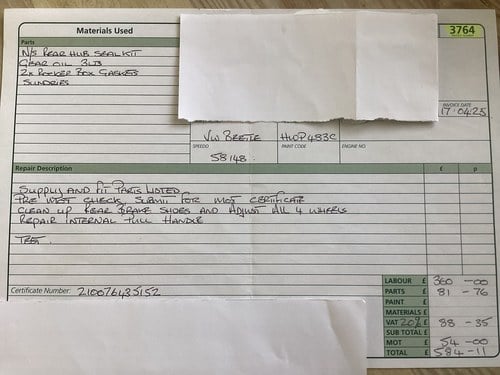 Materials Used
3764
Parts
N/S REAR HUB SEAL KIT
GEAR OIL 3LTS
2x ROCKER BOX GASKETS
SUNDRIES
INVOICE DATE
17.04.25
VW BEETLE HWP 483C
SPEEDO PAINT CODE ENGINE NO
58148.
Repair Description £ p
SUPPLY AND FIT PARTS LISTED
PRE MOT CHECK, SUBMIT FOR MOT CERTIFICATE
CLEAN UP REAR BRAKE SHOES AND ADJUST ALL 4 WHEELS
REPAIR INTERNAL PULL HANDLE
TEST.
Certificate Number: 210076435152
LABOUR £ 360 -00
PARTS £ 81 -76
PAINT £
MATERIALS £
VAT 20% £ 88 -35
SUB TOTAL £
MOT £ 54 -00
TOTAL £ 584 -11